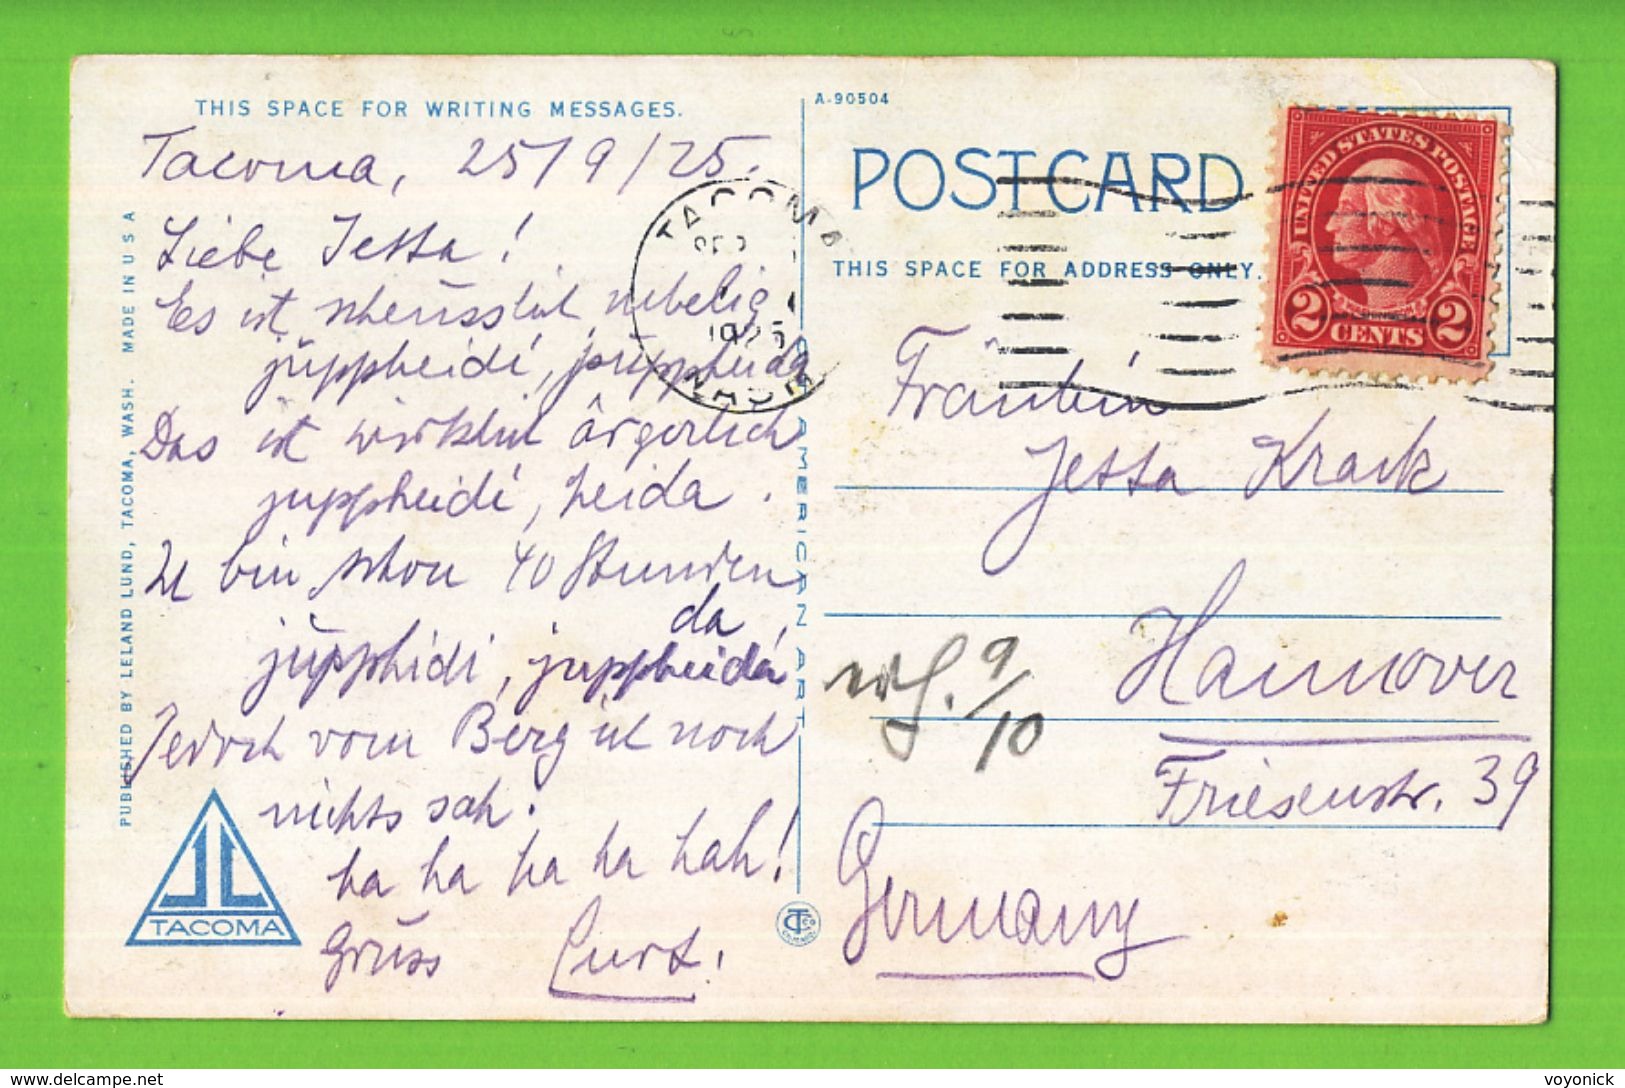 THIS SPACE FOR WRITING MESSAGES.
Tacoma, 25/9/25.
Liebe Jetta!
Es ist scheusslich nebelig
jüppheidi, jüppheida
Das ist wirklich ärgerlich
juppheidi, heida.
Ich bin schon 40 Stunden
da
jüpphidi, juppheida,
Jedoch vom Berg ich noch
nichts sah.
ha ha ha ha hah!
Grüss Curt.
PUBLISHED BY LELAND LUND, TACOMA, WASH. MADE IN U S A
TACOMA
AMERICAN ART
A-90504
POSTCARD
THIS SPACE FOR ADDRESS ONLY.
TACOMA
1925
WASH
UNITED STATES POSTAGE
2 CENTS 2
Fräulein
Jetta Krack
Hannover
Friesenstr. 39
Germany
9/10
voyonick
delcampe.net